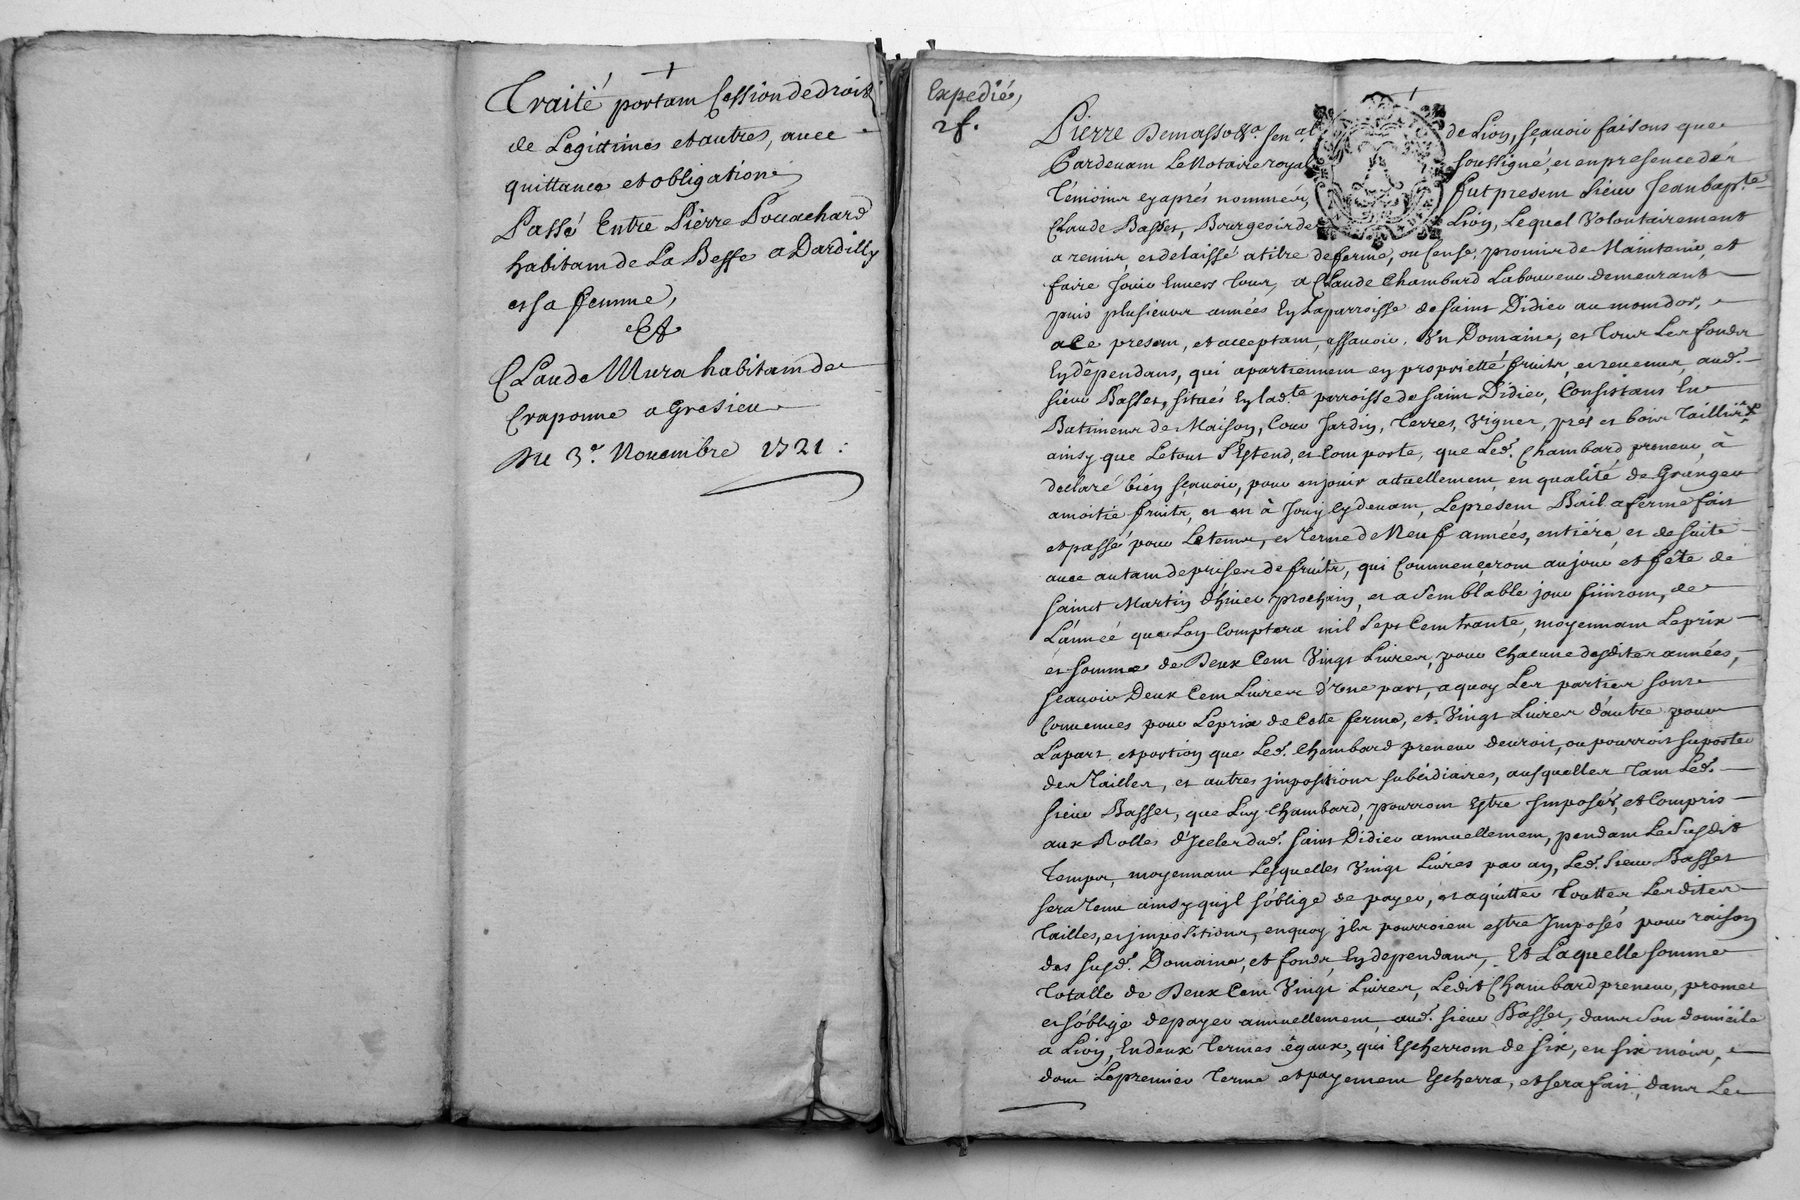 Traité portant Cession de droits
de Legittimes et autres, avec
quittance et obligation
Passé Entre Pierre Pouachard
habitant de La Besse a Dardilly
et sa femme,
Et
Claude Mura habitant de
Craponne a Gresieu
Du 3e. Novembre 1721 :
Expedié,
2 f.
Pierre Demasso &a. Sen.al de Lion, sçavoir faisons que
Pardevant Le Notaire royal soussigné, et en presence des
Témoins cy aprés nommés, fut present sieur Jean bap.te
Claude Basset, Bourgeois de Lion, Lequel Volontairement
a remis, et delaissé a titre de ferme, ou Cense, promis de Maintenir, et
faire Jouir Envers tous, a Claude Chambard Laboureur demeurant
puis plusieurs années En La parroisse de Saint Didier au montdor,
a Ce present, et acceptant, assavoir. Un Domaine, et tous Les fonds
En dépendans, qui apartiennent en proprietté fruits, et revenus, aud.
sieur Basset, situés En lad.te parroisse de Saint Didier, Consistans En
Batimens de Maison, Cour Jardin, Terres, Vignes, prés et bois Taillis
ainsy que Le tout S'Estend, et Comporte, que Led. Chambard preneur, à
declaré bien sçavoir, pour en jouir actuellement, en qualité de Granger
a moitié fruits, et en à Jouy cy devant, Le present Bail a ferme fait
et passé pour Le tems, et terme de Neuf années, entière et de suite
avec autant de prises de fruits, qui Commenceront au jour et féte de
saint Martin d'hiver prochain, et a Semblable jour finiront, de
L'année que Lon Comptera mil Sept Cent trante, moyennant Le prix
et somme de Deux Cent Vingt Livres, pour Chacune desdites années,
scavoir Deux Cent Livres d'une part, a quoy Les parties sont
Convenues pour Le prix de Cette ferme, et Vingt Livres d'autre pour
La part et portion que Led. Chambard preneur devroit, ou pourroit suporter
des Tailles, et autres jmpositions subcidiaires, ausquelles tant Led.
sieur Basset, que Luy Chambard, pourront Estre Jmposés, et Compris
aux Rolles d'Jcelles dud. Saint Didier annuellement, pendant Le susdit
Temps, moyennant Lesquelles Vingt Livres par an, Led. Sieur Basset
sera tenu ainsy qu'jl s'oblige de payer, et aquitter touttes Lesdites
Tailles, et jmpositions, en quoy jls pourroient estre Jmposés pour raison
des susd. Domaine, et fonds, En dependans, Et Laquelle somme
totalle de Deux Cent Vingt Livres, Ledit Chambard preneur, promet
et s'oblige de payer annuellement, aud. sieur Basset, dans Son domicile
a Lion, En deux termes égaux, qui Escherront de six, en six mois,
dont Le premier terme et payement Escherra, et sera fait, dans Le